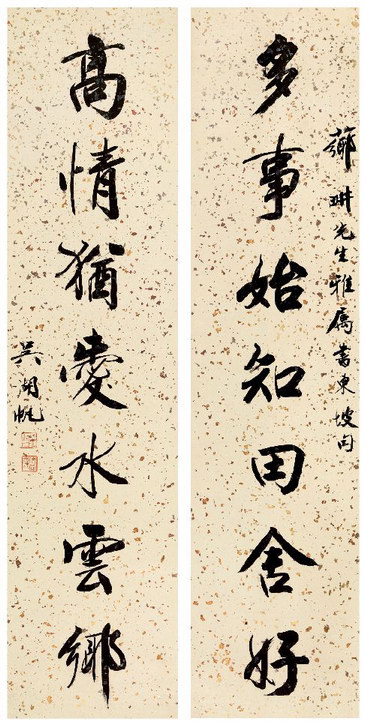 薌琳先生雅屬書東坡句
多事始知田舍好
高情猶愛水雲鄉
吳湖帆